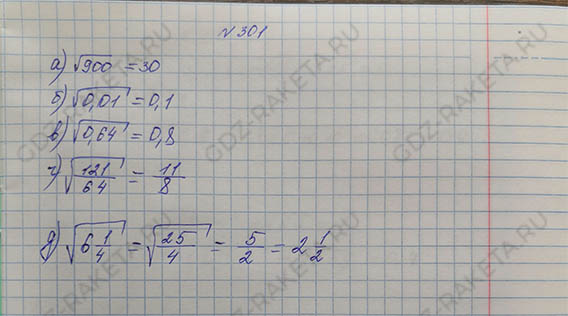 №301
а) √900 = 30
б) √0,01 = 0,1
в) √0,64 = 0,8
г) √121/64 = 11/8
д) √6 1/4 = √25/4 = 5/2 = 2 1/2
GDZ-RAKETA.RU
GDZ-RAKETA.RU
GDZ-RAKETA.RU
GDZ-RAKETA.RU